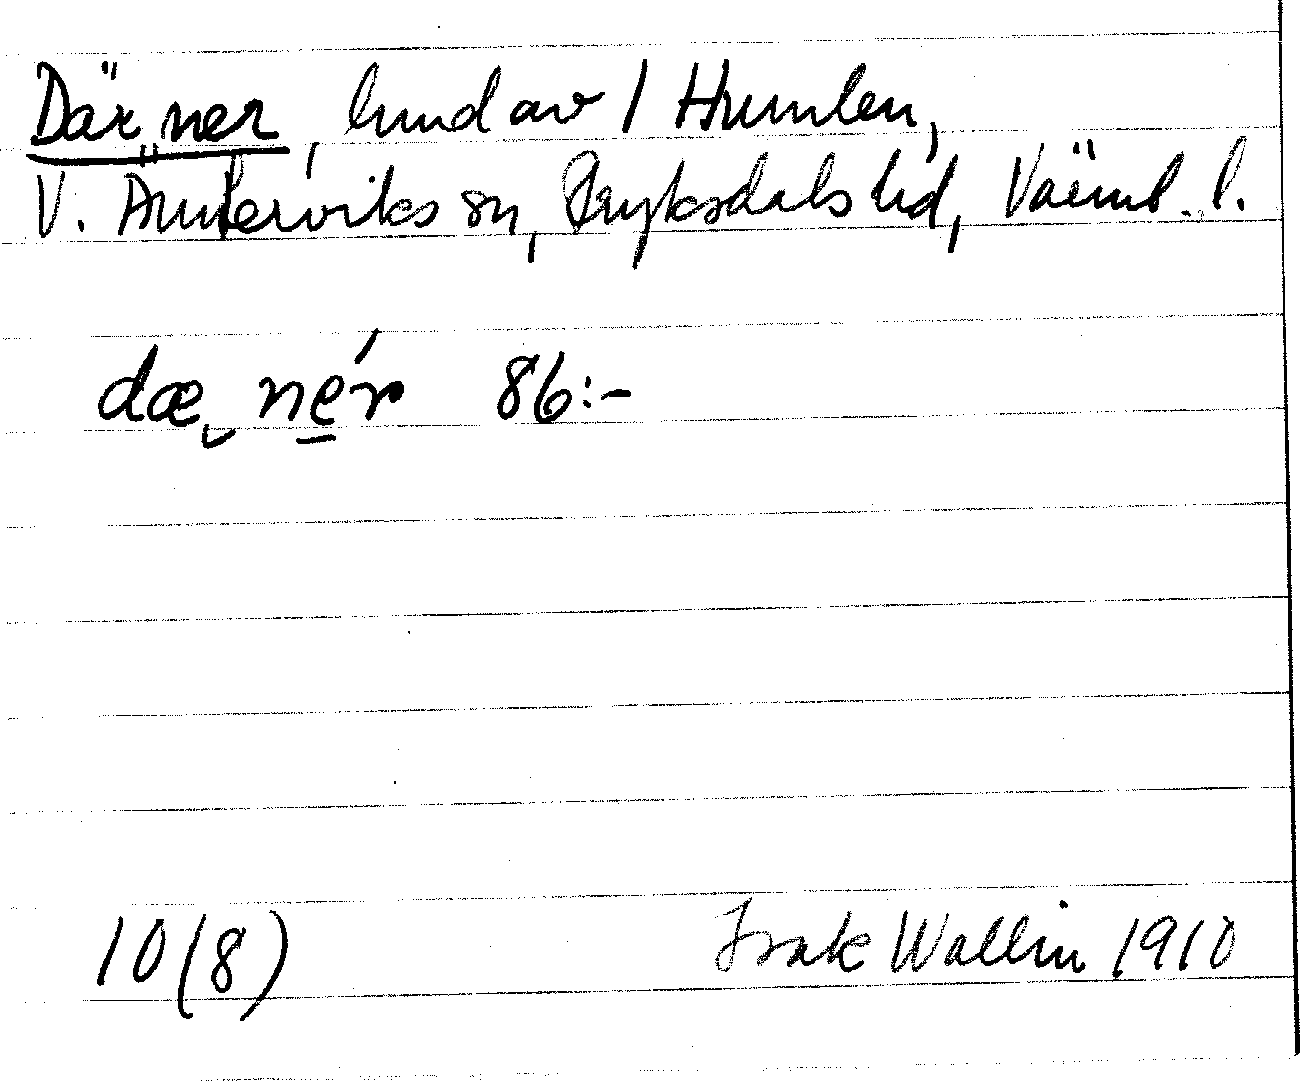 Där ner, lund av 1 Humlen,
V. Ämterviks sn, Fryksdals hd, Värml. l.
dæ nér 86:-
10(8) Isak Wallin 1910